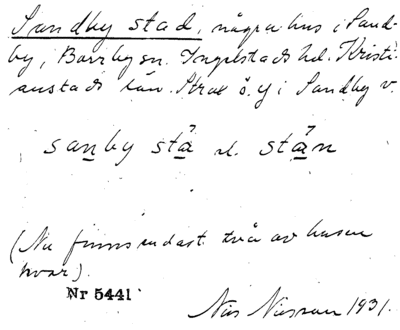 Sandby stad, några hus i Sand-
by, Borrby sn. Ingelstads hd. Kristi-
anstads län. Strax ö. i Sandby v.
sanby stå el. stån
(Nu finns endast två av husen
kvar).
Nr 5441
Nils Nilsson 1931.